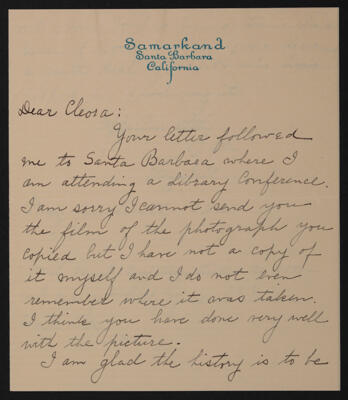 Samarkand
Santa Barbara
California
Dear Cleosa:
Your letter followed
me to Santa Barbara where I
am attending a Library Conference.
I am sorry I cannot send you
the film of the photograph you
copied but I have not a copy of
it myself and I do not even
remember where it was taken.
I think you have done very well
with the picture.
I am glad the history is to be